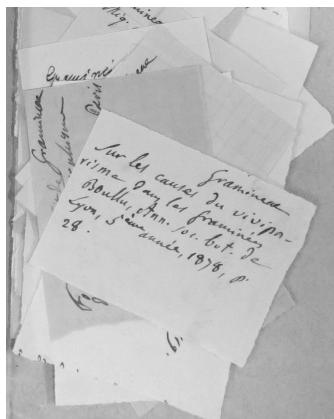 Gramineae
Sur les causes du vivipa-
risme dans les graminées
Boullu, Ann. soc. bot. de
Lyon, 5ème année, 1878, p.
28.
Graminé
Gramineae
Paris